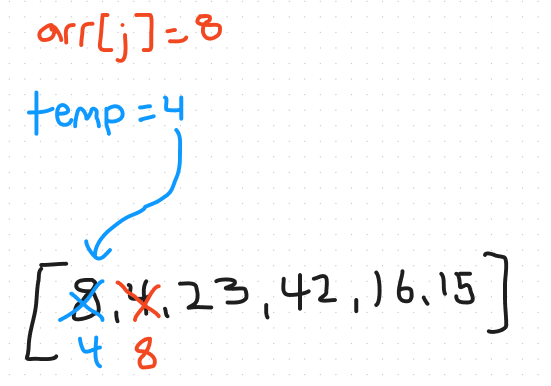 arr[j]=8
temp=4
[8,4,23,42,16,15]
4 8